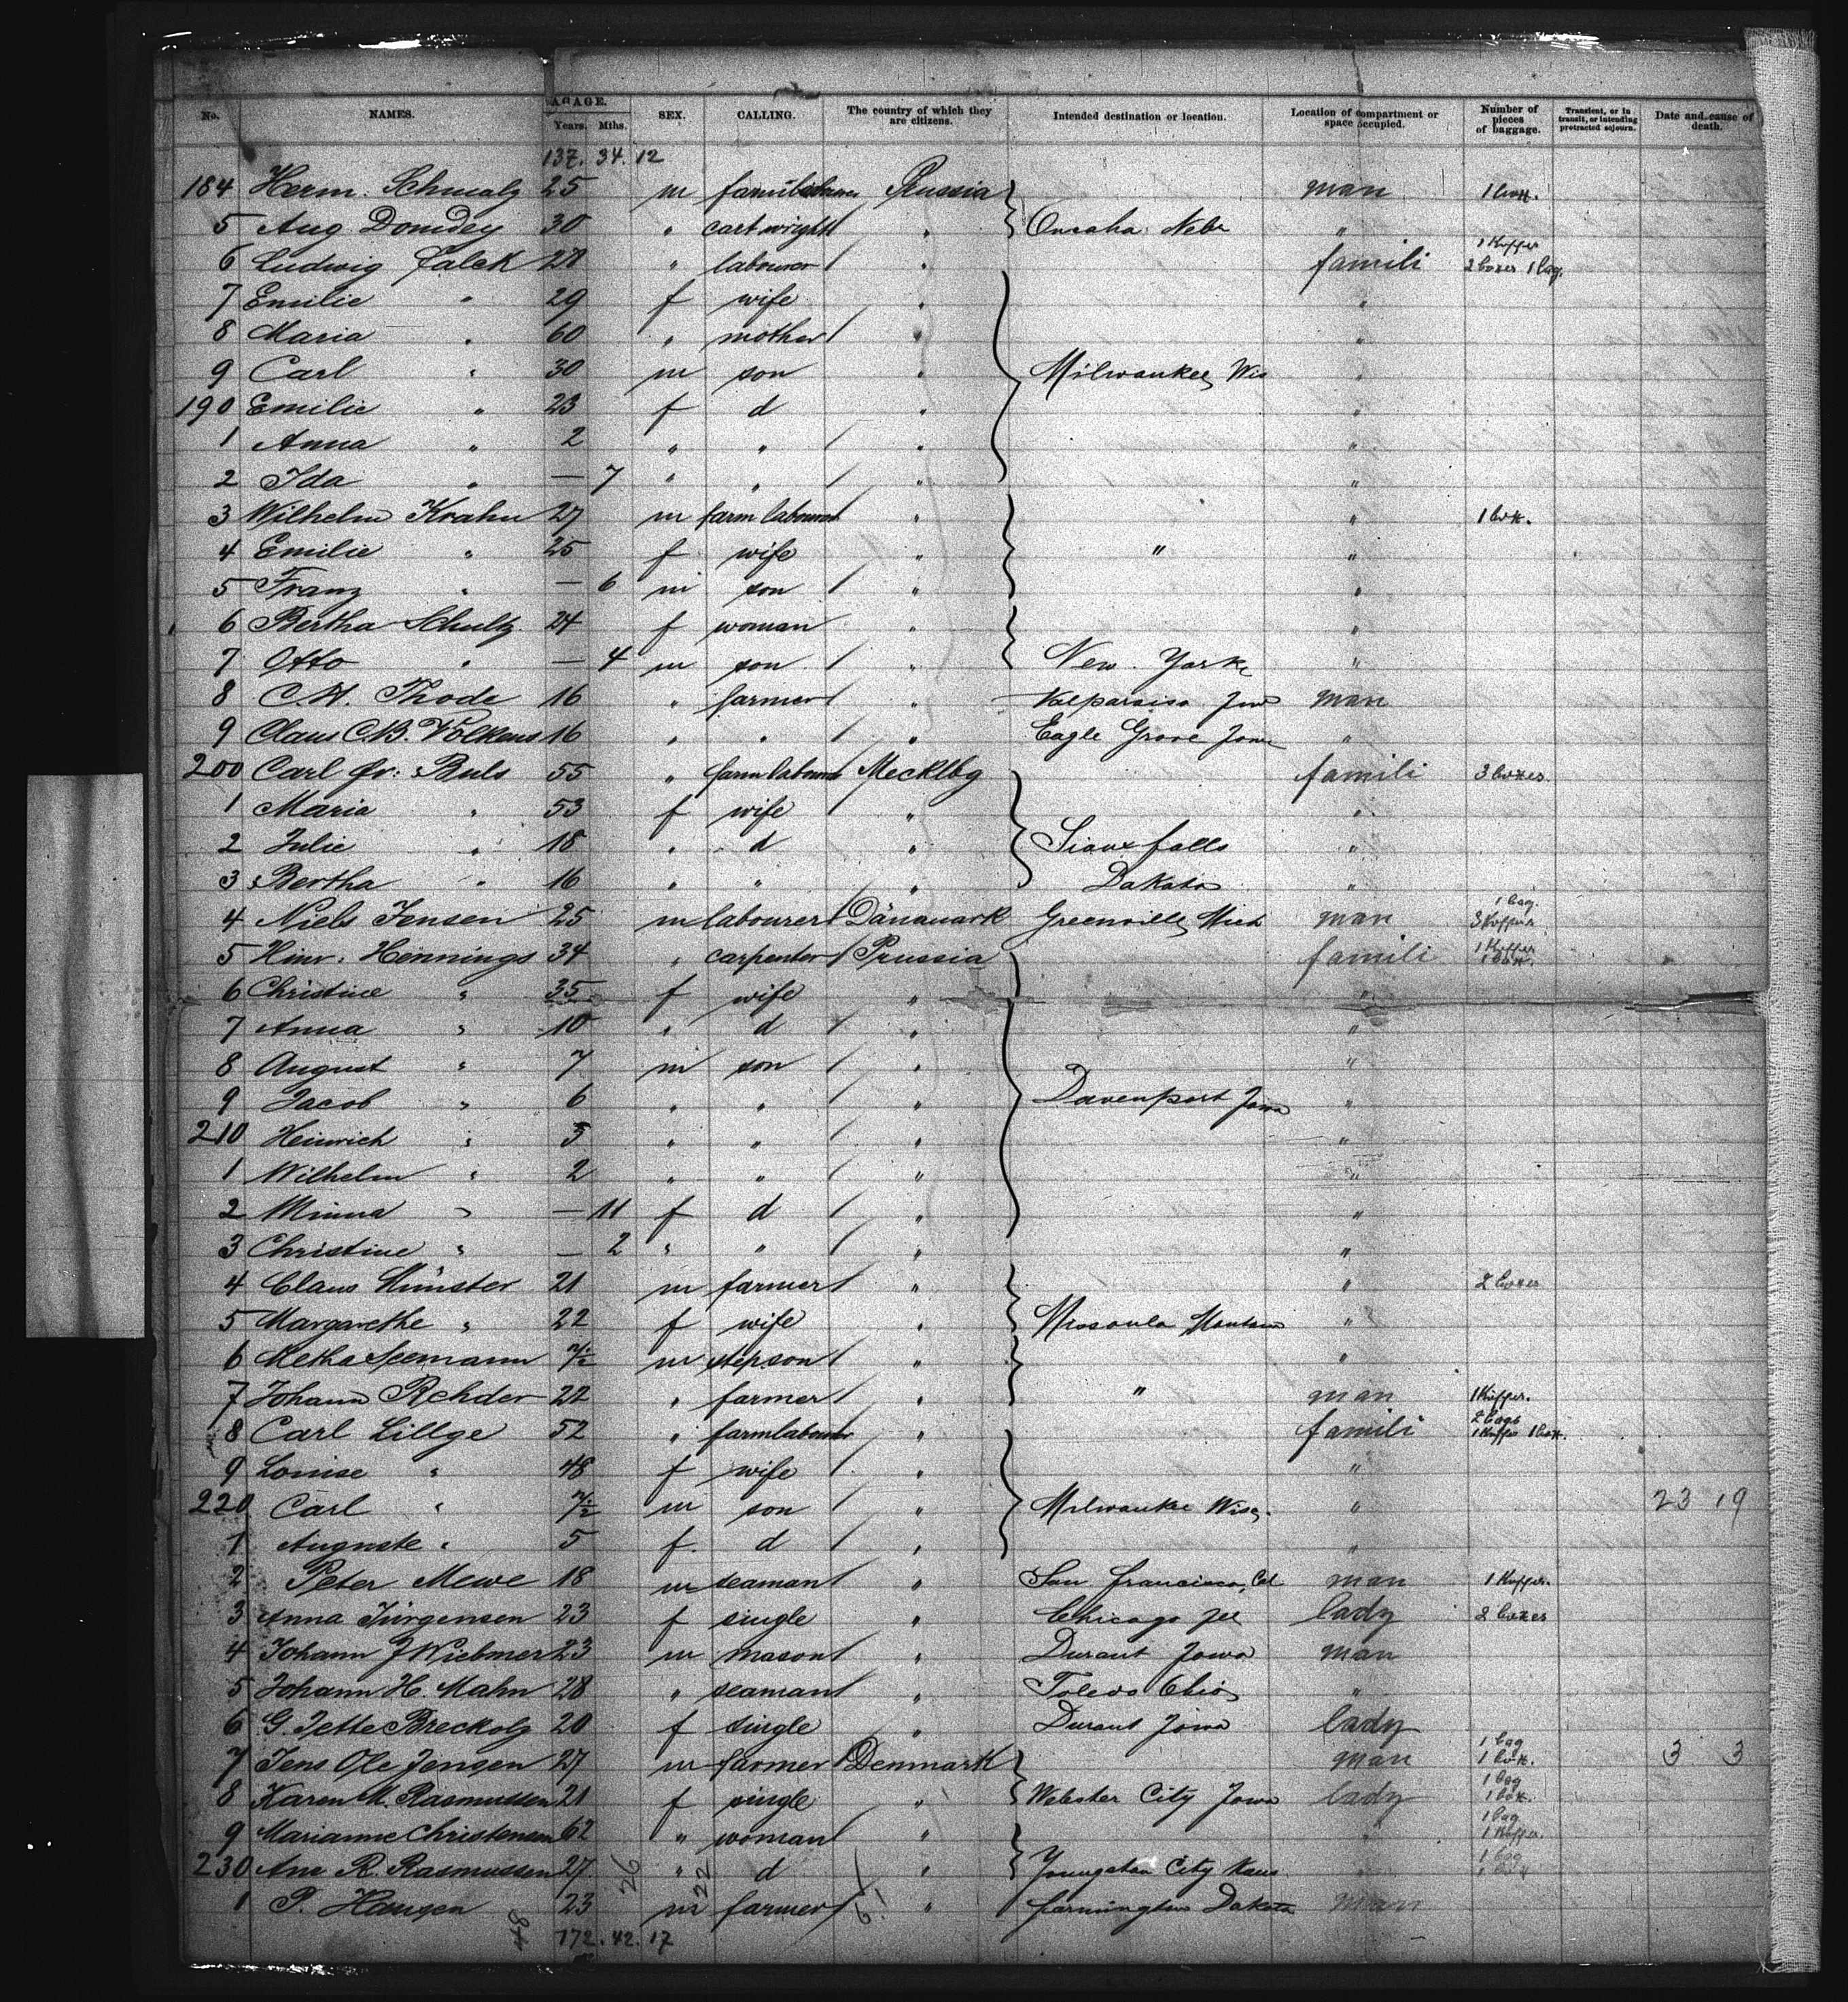 No. NAMES. AGE. Years. Mths. SEX. CALLING. The country of which they are citizens. Intended destination or location. Location of compartment or space occupied. Number of pieces of baggage. Transient, or in transit, or intending protracted sojourn. Date and cause of death.
137. 34. 12
184 Herm. Schmalz 25 m Prussia man 1 box.
5 Aug. Domdey 30 " cartwright " Omaha Nebr "
6 Ludwig Falck 28 " labourer " famili 1 Koffer 2 boxes 1 bag.
7 Emilie " 29 f wife " "
8 Maria " 60 " mother " "
9 Carl " 30 m son " Milwaukee, Wis "
190 Emilie " 23 f d " "
1 Anna " 2 " " " "
2 Ida " — 7 " " " "
3 Wilhelm Krahn 27 m farm labourer " " 1 box.
4 Emilie " 25 f wife " " "
5 Franz " — 6 m son " "
6 Bertha Schultz 24 f woman " "
7 Otto " — 4 m son " New York "
8 C.H. Thode 16 " farmer " Valparaiso man
9 Claus C.B. Volkens 16 " " " Eagle Grove Iowa "
200 Carl Fr: Buls 55 " farm labourer Mecklbg famili 3 boxes
1 Maria " 53 f wife " "
2 Julie " 18 " d " Sioux falls "
3 Bertha " 16 " " " Dakota "
4 Niels Jensen 25 m labourer Dänamark Greenville, Mich man 1 bag. 3 Koffer
5 Hinr. Hennings 34 " carpenter Prussia famili 1 Koffer 1 box.
6 Christine " 35 f wife " "
7 Anna " 10 " d " "
8 August " 7 m son " "
9 Jacob " 6 " " " Davenport Iowa "
210 Heinrich " 3 " " " "
1 Wilhelm " 2 " " " "
2 Minna " — 11 f d " "
3 Christine " — 2 " " " "
4 Claus Münster 21 m farmer " " 2 boxes
5 Margarethe " 22 f wife " Missoula Montana "
6 Metha Seemann m stepson " "
7 Johann Rehder 22 " farmer " " man 1 Koffer.
8 Carl Lillge 52 " farmlabourer " famili 2 bags 1 Koffer 1 box.
9 Louise " 48 f wife " "
220 Carl " m son " Milwaukee Wisc. " 23 19
1 Auguste " 5 f d " "
2 Peter Mewe 18 m seaman " San Francisco, Cal man 1 Koffer.
3 Anna Jürgensen 23 f single " Chicago Ill lady 2 boxes
4 Johann J Wiebmer 23 m mason " Durant Iowa man
5 Johann H. Mahn 28 " seaman " Toledo Ohio "
6 G. Jette Breckolz 20 f single " Durant Iowa lady
7 Jens Ole Jensen 27 m farmer Denmark man 1 bag 1 box. 3 3
8 Karen M. Rasmussen 21 f single " Webster City Iowa lady 1 bag 1 box.
9 Marianne Christensen 62 " woman " " 1 bag 1 Koffer.
230 Ane R. Rasmussen 27 " d " City Kans " 1 bag
1 P. Hansen 23 m farmer " Farmington Dakota man
48 26 22
172. 42. 17